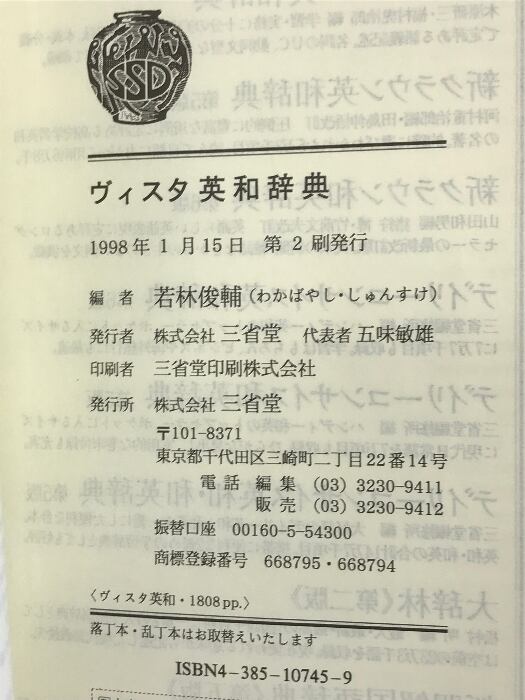 SSD
ヴィスタ英和辞典
1998年1月15日 第2刷発行
編者 若林俊輔(わかばやし・しゅんすけ)
発行者 株式会社 三省堂 代表者 五味敏雄
印刷者 三省堂印刷株式会社
発行所 株式会社 三省堂
〒101-8371
東京都千代田区三崎町二丁目22番14号
電話 編集 (03) 3230-9411
販売 (03) 3230-9412
振替口座 00160-5-54300
商標登録番号 668795・668794
〈ヴィスタ英和・1808pp.〉
落丁本・乱丁本はお取替えいたします
ISBN4-385-10745-9